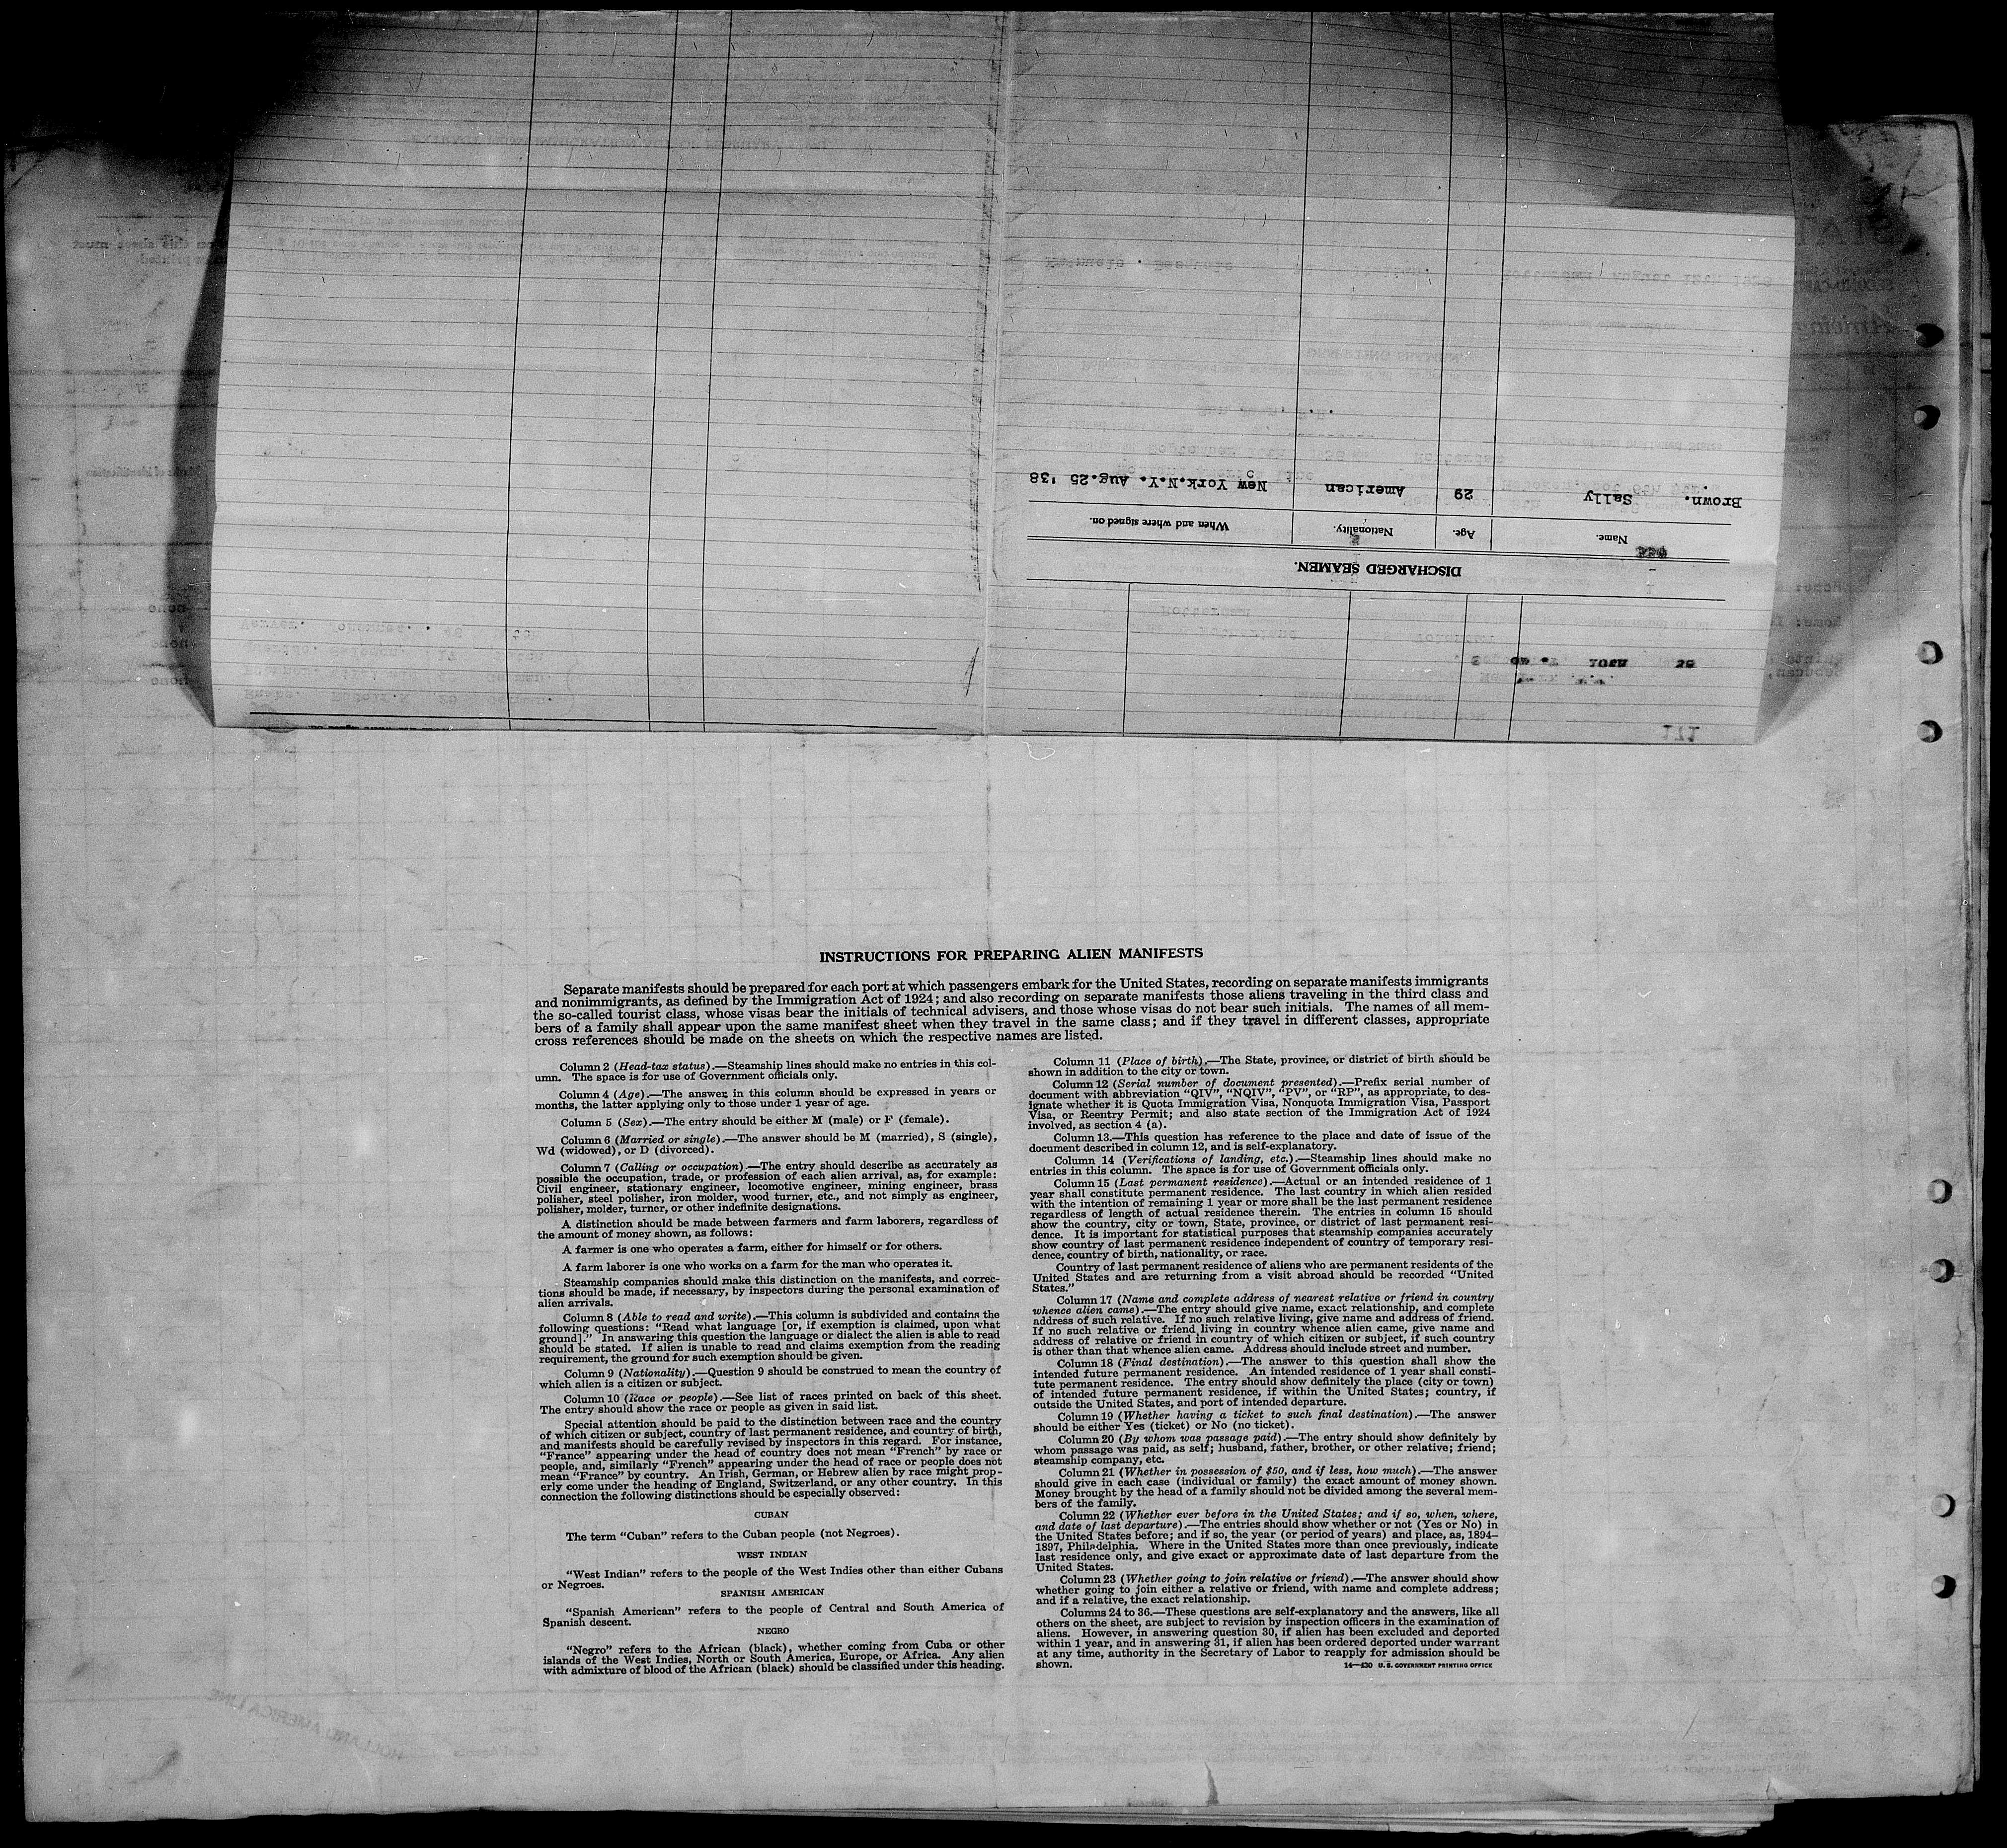 DISCHARGED SEAMEN.
Name. Age. Nationality. When and where signed on.
Brown. Sally 29 American New York.N.Y. Aug.25 '38
INSTRUCTIONS FOR PREPARING ALIEN MANIFESTS
Separate manifests should be prepared for each port at which passengers embark for the United States, recording on separate manifests immigrants
and nonimmigrants, as defined by the Immigration Act of 1924; and also recording on separate manifests those aliens traveling in the third class and
the so-called tourist class, whose visas bear the initials of technical advisers, and those whose visas do not bear such initials. The names of all mem-
bers of a family shall appear upon the same manifest sheet when they travel in the same class; and if they travel in different classes, appropriate
cross references should be made on the sheets on which the respective names are listed.
Column 2 (Head-tax status).—Steamship lines should make no entries in this col-
umn. The space is for use of Government officials only.
Column 4 (Age).—The answer in this column should be expressed in years or
months, the latter applying only to those under 1 year of age.
Column 5 (Sex).—The entry should be either M (male) or F (female).
Column 6 (Married or single).—The answer should be M (married), S (single),
Wd (widowed), or D (divorced).
Column 7 (Calling or occupation).—The entry should describe as accurately as
possible the occupation, trade, or profession of each alien arrival, as, for example:
Civil engineer, stationary engineer, locomotive engineer, mining engineer, brass
polisher, steel polisher, iron molder, wood turner, etc., and not simply as engineer,
polisher, molder, turner, or other indefinite designations.
A distinction should be made between farmers and farm laborers, regardless of
the amount of money shown, as follows:
A farmer is one who operates a farm, either for himself or for others.
A farm laborer is one who works on a farm for the man who operates it.
Steamship companies should make this distinction on the manifests, and correc-
tions should be made, if necessary, by inspectors during the personal examination of
alien arrivals.
Column 8 (Able to read and write).—This column is subdivided and contains the
following questions: “Read what language [or, if exemption is claimed, upon what
ground].” In answaring this question the language or dialect the alien is able to read
should be stated. If alien is unable to read and claims exemption from the reading
requirement, the ground for such exemption should be given.
Column 9 (Nationality).—Question 9 should be construed to mean the country of
which alien is a citizen or subject.
Column 10 (Race or people).—See list of races printed on back of this sheet.
The entry should show the race or people as given in said list.
Special attention should be paid to the distinction between race and the country
of which citizen or subject, country of last permanent residence, and country of birth,
and manifests should be carefully revised by inspectors in this regard. For instance,
“France” appearing under the head of country does not mean “French” by race or
people, and, similarly “French” appearing under the head of race or people does not
mean “France” by country. An Irish, German, or Hebrew alien by race might prop-
erly come under the heading of England, Switzerland, or any other country. In this
connection the following distinctions should be especially observed:
CUBAN
The term “Cuban” refers to the Cuban people (not Negroes).
WEST INDIAN
“West Indian” refers to the people of the West Indies other than either Cubans
or Negroes.
SPANISH AMERICAN
“Spanish American” refers to the people of Central and South America of
Spanish descent.
NEGRO
“Negro” refers to the African (black), whether coming from Cuba or other
islands of the West Indies, North or South America, Europe, or Africa. Any alien
with admixture of blood of the African (black) should be classified under this heading.
Column 11 (Place of birth).—The State, province, or district of birth should be
shown in addition to the city or town.
Column 12 (Serial number of document presented).—Prefix serial number of
document with abbreviation “QIV”, “NQIV”, “PV”, or “RP”, as appropriate, to des-
ignate whether it is Quota Immigration Visa, Nonquota Immigration Visa, Passport
Visa, or Reentry Permit; and also state section of the Immigration Act of 1924
involved, as section 4 (a).
Column 13.—This question has reference to the place and date of issue of the
document described in column 12, and is self-explanatory.
Column 14 (Verifications of landing, etc.).—Steamship lines should make no
entries in this column. The space is for use of Government officials only.
Column 15 (Last permanent residence).—Actual or an intended residence of 1
year shall constitute permanent residence. The last country in which alien resided
with the intention of remaining 1 year or more shall be the last permanent residence
regardless of length of actual residence therein. The entries in column 15 should
show the country, city or town, State, province, or district of last permanent resi-
dence. It is important for statistical purposes that steamship companies accurately
show country of last permanent residence independent of country of temporary resi-
dence, country of birth, nationality, or race.
Country of last permanent residence of aliens who are permanent residents of the
United States and are returning from a visit abroad should be recorded “United
States.”
Column 17 (Name and complete address of nearest relative or friend in country
whence alien came).—The entry should give name, exact relationship, and complete
address of such relative. If no such relative living, give name and address of friend.
If no such relative or friend living in country whence alien came, give name and
address of relative or friend in country of which citizen or subject, if such country
is other than that whence alien came. Address should include street and number.
Column 18 (Final destination).—The answer to this question shall show the
intended future permanent residence. An intended residence of 1 year shall consti-
tute permanent residence. The entry should show definitely the place (city or town)
of intended future permanent residence, if within the United States; country, if
outside the United States, and port of intended departure.
Column 19 (Whether having a ticket to such final destination).—The answer
should be either Yes (ticket) or No (no ticket).
Column 20 (By whom was passage paid).—The entry should show definitely by
whom passage was paid, as self; husband, father, brother, or other relative; friend;
steamship company, etc.
Column 21 (Whether in possession of $50, and if less, how much).—The answer
should give in each case (individual or family) the exact amount of money shown.
Money brought by the head of a family should not be divided among the several mem-
bers of the family.
Column 22 (Whether ever before in the United States; and if so, when, where,
and date of last departure).—The entries should show whether or not (Yes or No) in
the United States before; and if so, the year (or period of years) and place, as, 1894–
1897, Philadelphia. Where in the United States more than once previously, indicate
last residence only, and give exact or approximate date of last departure from the
United States.
Column 23 (Whether going to join relative or friend).—The answer should show
whether going to join either a relative or friend, with name and complete address;
and if a relative, the exact relationship.
Columns 24 to 36.—These questions are self-explanatory and the answers, like all
others on the sheet, are subject to revision by inspection officers in the examination of
aliens. However, in answering question 30, if alien has been excluded and deported
within 1 year, and in answering 31, if alien has been ordered deported under warrant
at any time, authority in the Secretary of Labor to reapply for admission should be
shown.
14—430 U. S. GOVERNMENT PRINTING OFFICE
HOLLAND AMERICA LINE